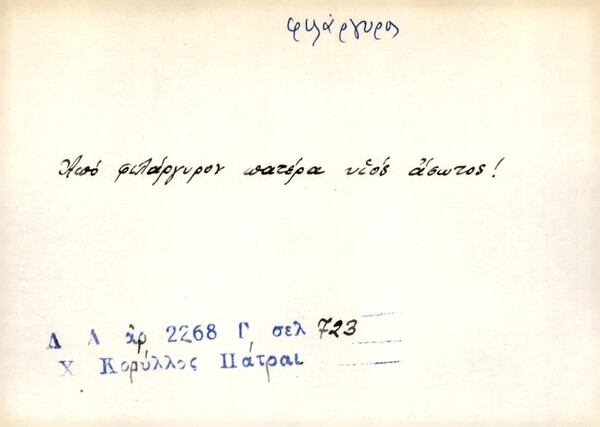 φιλάργυρος
Ἀπό φιλάργυρον πατέρα υἱός ἄσωτος!
Λ Α ἀρ 2268 Γ σελ 723
Χ Κορύλλος Πάτραι